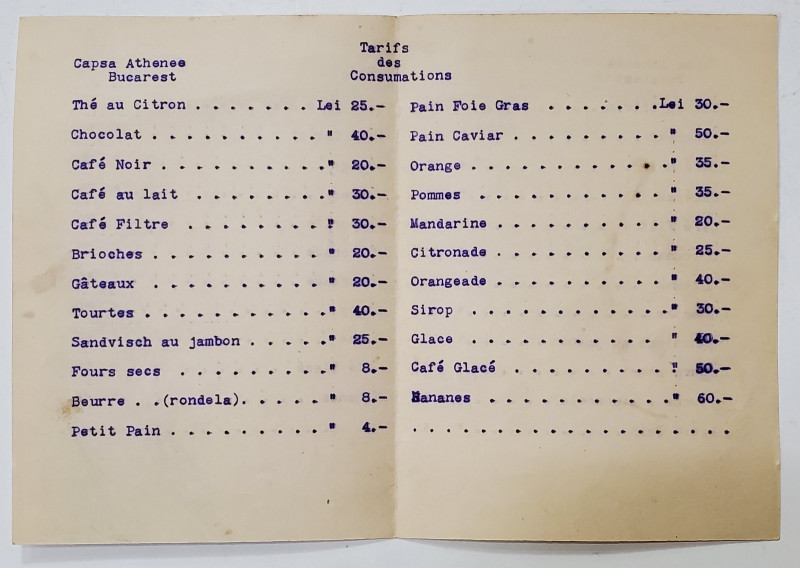 Capsa Athenee
Bucarest
Tarifs
des
Consumations
Thé au Citron . . . . . . . Lei 25.-
Chocolat . . . . . . . . . . " 40.-
Café Noir . . . . . . . . . ." 20.-
Café au lait . . . . . . . . " 30.-
Café Filtre . . . . . . . . " 30.-
Brioches . . . . . . . . . . " 20.-
Gâteaux . . . . . . . . . . " 20.-
Tourtes . . . . . . . . . . ." 40.-
Sandvisch au jambon . . . . . " 25.-
Fours secs . . . . . . . . . " 8.-
Beurre . .(rondela). . . . . " 8.-
Petit Pain . . . . . . . . . " 4.-
Pain Foie Gras . . . . . . .Lei 30.-
Pain Caviar . . . . . . . . . " 50.-
Orange . . . . . . . . . . . ." 35.-
Pommes . . . . . . . . . . . " 35.-
Mandarine . . . . . . . . . . " 20.-
Citronade . . . . . . . . . . " 25.-
Orangeade . . . . . . . . . . " 40.-
Sirop . . . . . . . . . . . ." 30.-
Glace . . . . . . . . . . " 40.-
Café Glacé . . . . . . . . . " 50.-
Bananes . . . . . . . . . . . " 60.-
. . . . . . . . . . . . . . . . . . . .